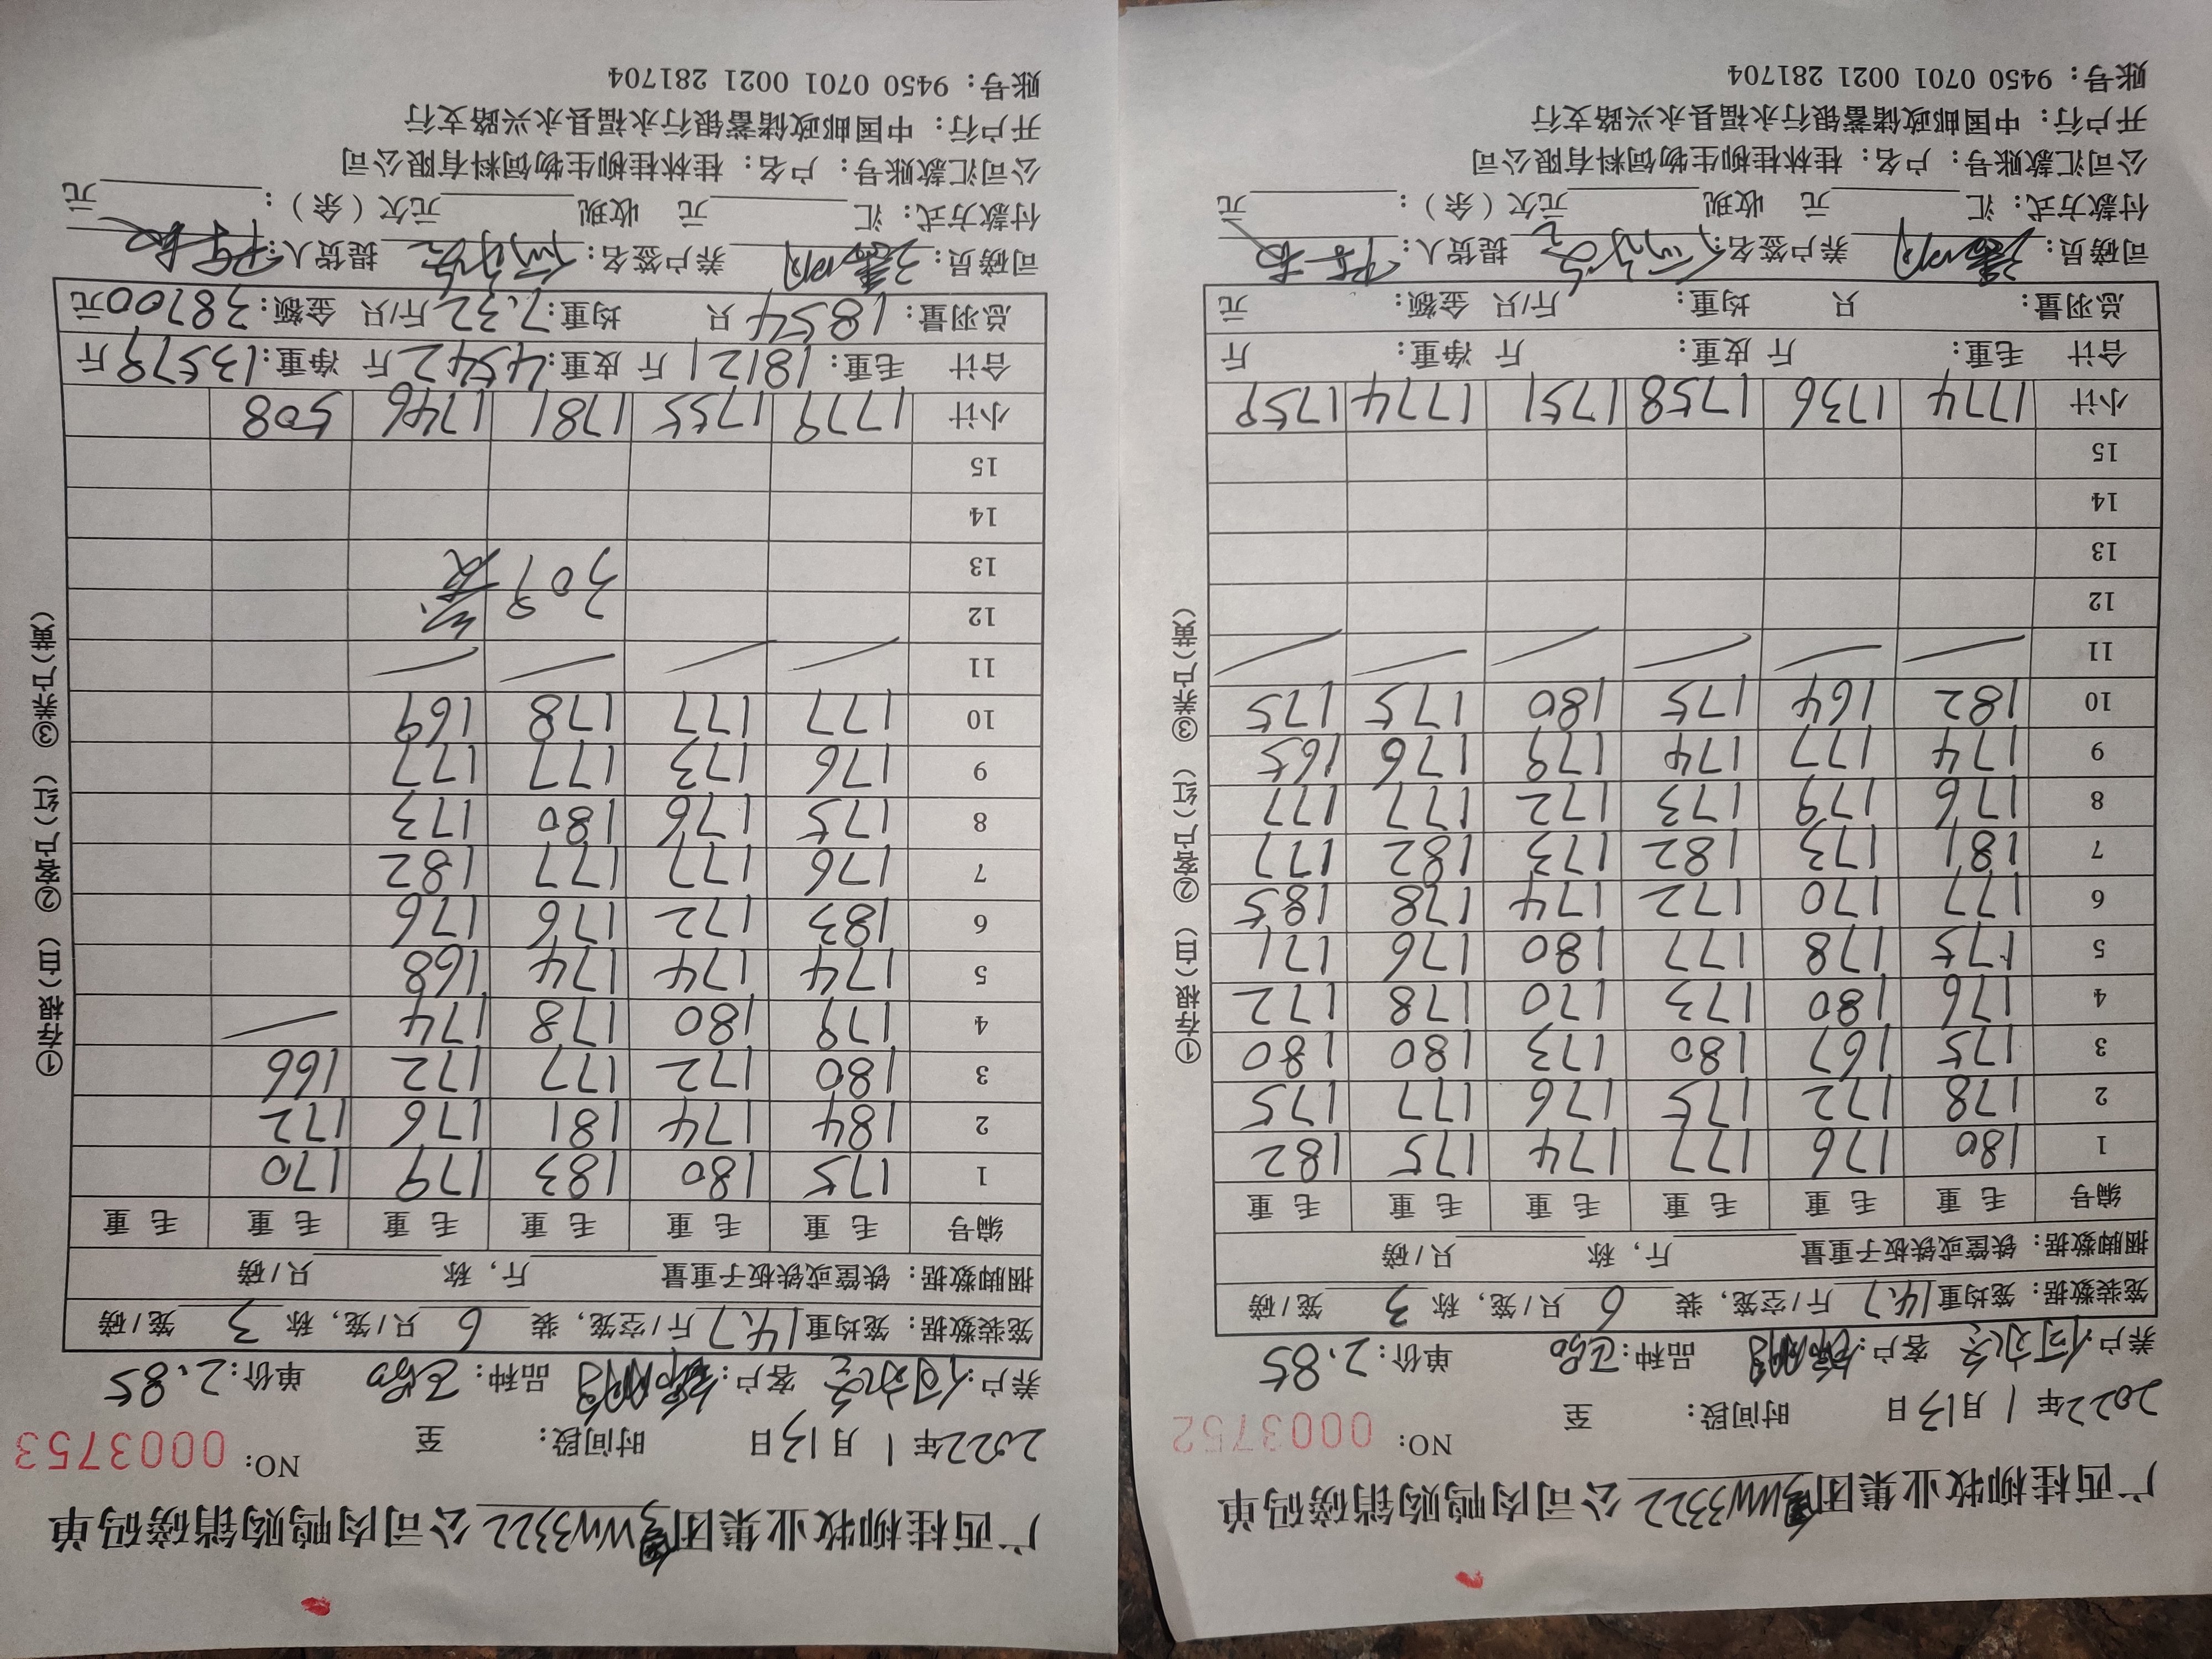 广西桂柳牧业集团WW3322公司肉鸭购销磅码单
2022年1月13日 时间段: 至 NO: 0003752
养户:何 客户: 品种: 单价:2.85
笼装数据: 笼均重14.7斤/空笼, 装6只/笼, 称3笼/磅
捆脚数据: 铁筐或铁板子重量 斤, 称 只/磅
编号 毛重 毛重 毛重 毛重 毛重 毛重
1 180 176 177 174 175 182
2 178 172 175 176 177 175
3 175 167 180 173 180 180
4 176 180 173 170 178 172
5 175 178 177 180 176 171
6 177 170 172 174 178 185
7 181 173 182 173 182 177
8 176 179 173 172 177 177
9 174 177 174 179 176 165
10 182 164 175 180 175 175
11
12
13
14
15
小计 1774 1736 1758 1751 1774 1759
合计 毛重: 斤 皮重: 斤 净重: 斤
总羽量: 只 均重: 斤/只 金额: 元
司磅员: 养户签名: 提货人:
付款方式: 汇 元 收现 元欠(余): 元
公司汇款账号: 户名: 桂林桂柳生物饲料有限公司
开户行: 中国邮政储蓄银行永福县永兴路支行
账号: 9450 0701 0021 281704
①存根(白) ②客户(红) ③养户(黄)
广西桂柳牧业集团WW3322公司肉鸭购销磅码单
2022年1月13日 时间段: 至 NO: 0003753
养户:何 客户: 品种: 单价:2.85
笼装数据: 笼均重14.7斤/空笼, 装6只/笼, 称3笼/磅
捆脚数据: 铁筐或铁板子重量 斤, 称 只/磅
编号 毛重 毛重 毛重 毛重 毛重 毛重
1 175 180 183 179 170
2 184 174 181 176 172
3 180 172 177 172 166
4 179 180 178 174
5 174 174 174 168
6 183 172 176 176
7 176 177 177 182
8 175 176 180 173
9 176 173 177 177
10 177 177 178 169
11
12
13 309
14
15
小计 1779 1755 1781 1746 508
合计 毛重:18121斤 皮重:4542斤 净重:13579斤
总羽量:1854只 均重:7.32斤/只 金额:38700元
司磅员: 养户签名: 提货人:
付款方式: 汇 元 收现 元欠(余): 元
公司汇款账号: 户名: 桂林桂柳生物饲料有限公司
开户行: 中国邮政储蓄银行永福县永兴路支行
账号: 9450 0701 0021 281704
①存根(白) ②客户(红) ③养户(黄)